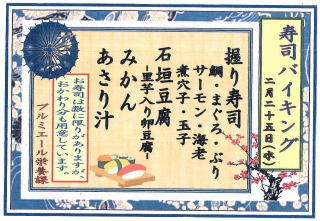 寿司バイキング
二月二十五日(水)
握り寿司
鯛・まぐろ・ぶり
サーモン・海老
煮穴子・玉子
石垣豆腐
―里芋入り卵豆腐―
みかん
あさり汁
お寿司は数に限りがありますが、
おかわり分も用意しています。
プルミエール栄養課